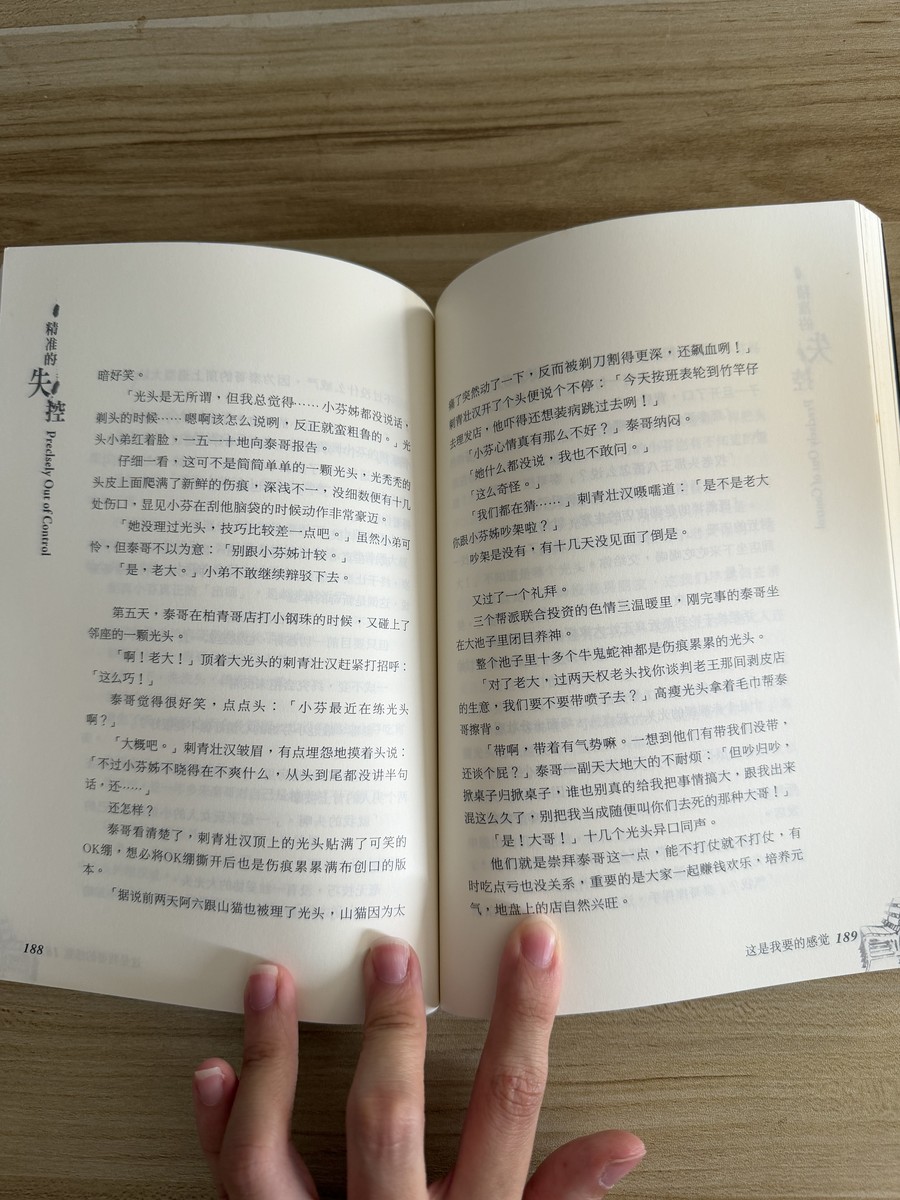 精准的
失控
Precisely Out of Control
暗好笑。
「光头是无所谓，但我总觉得……小芬姊都没说话，
剃头的时候……嗯啊该怎么说咧，反正就蛮粗鲁的。」光
头小弟红着脸，一五一十地向泰哥报告。
仔细一看，这可不是简简单单的一颗光头，光秃秃的
头皮上面爬满了新鲜的伤痕，深浅不一，没细数便有十几
处伤口，显见小芬在刮他脑袋的时候动作非常豪迈。
「她没理过光头，技巧比较差一点吧。」虽然小弟可
怜，但泰哥不以为意：「别跟小芬姊计较。」
「是，老大。」小弟不敢继续辩驳下去。
第五天，泰哥在柏青哥店打小钢珠的时候，又碰上了
邻座的一颗光头。
「啊！老大！」顶着大光头的刺青壮汉赶紧打招呼：
「这么巧！」
泰哥觉得很好笑，点点头：「小芬最近在练光头
啊？」
「大概吧。」刺青壮汉皱眉，有点埋怨地摸着头说：
「不过小芬姊不晓得在不爽什么，从头到尾都没讲半句
话，还……」
还怎样？
泰哥看清楚了，刺青壮汉顶上的光头贴满了可笑的
OK绷，想必将OK绷撕开后也是伤痕累累满布创口的版
本。
「据说前两天阿六跟山猫也被理了光头，山猫因为太
188
痛了突然动了一下，反而被剃刀割得更深，还飙血咧！」
刺青壮汉开了个头便说个不停：「今天按班表轮到竹竿仔
去理发店，他吓得还想装病跳过去咧！」
「小芬心情真有那么不好？」泰哥纳闷。
「她什么都没说，我也不敢问。」
「这么奇怪。」
「我们都在猜……」刺青壮汉嗫嚅道：「是不是老大
你跟小芬姊吵架啦？」
吵架是没有，有十几天没见面了倒是。
又过了一个礼拜。
三个帮派联合投资的色情三温暖里，刚完事的泰哥坐
在大池子里闭目养神。
整个池子里十多个牛鬼蛇神都是伤痕累累的光头。
「对了老大，过两天权老头找你谈判老王那间剥皮店
的生意，我们要不要带喷子去？」高瘦光头拿着毛巾帮泰
哥擦背。
「带啊，带着有气势嘛。一想到他们有带我们没带，
还谈个屁？」泰哥一副天大地大的不耐烦：「但吵归吵，
掀桌子归掀桌子，谁也别真的给我把事情搞大，跟我出来
混这么久了，别把我当成随便叫你们去死的那种大哥！」
「是！大哥！」十几个光头异口同声。
他们就是崇拜泰哥这一点，能不打仗就不打仗，有
时吃点亏也没关系，重要的是大家一起赚钱欢乐，培养元
气，地盘上的店自然兴旺。
这是我要的感觉 189